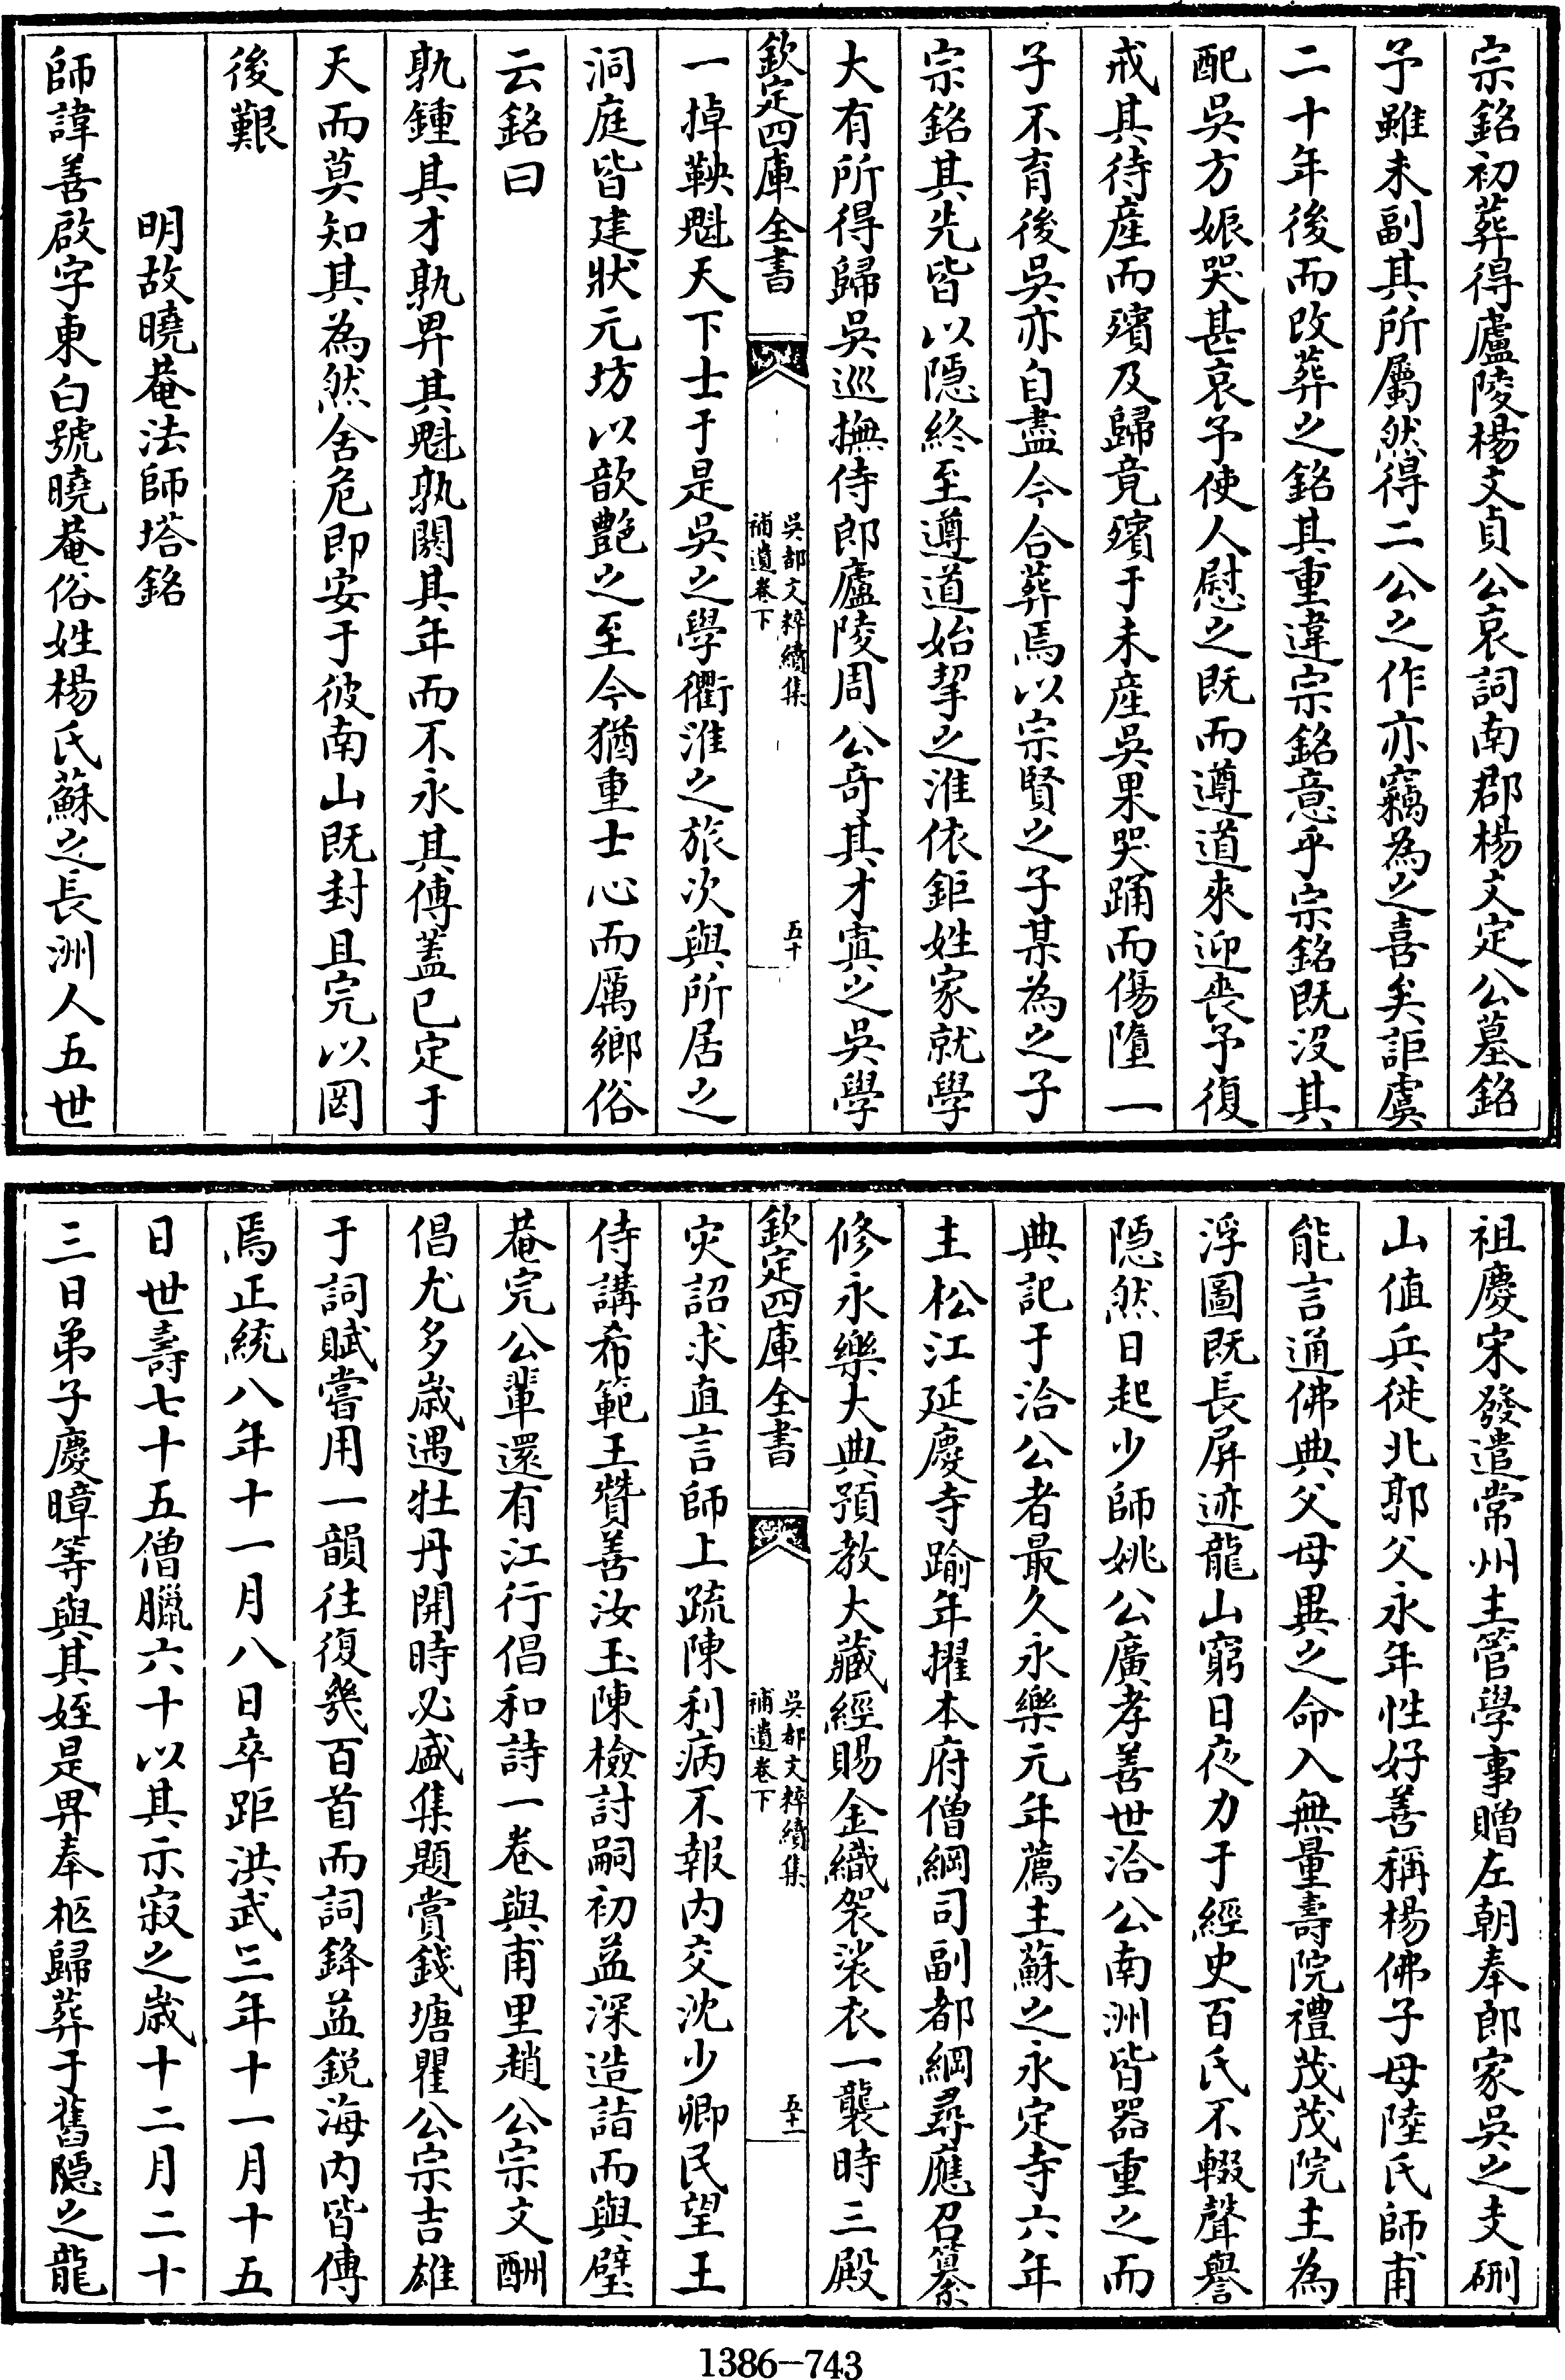 宗銘初葬得廬陵楊文貞公哀詞南郡楊文定公墓銘
予雖未副其所屬然得二公之作亦竊為之喜矣詎虞
二十年後而改葬之銘其重違宗銘意乎宗銘既沒其
配吳方娠哭甚哀予使人慰之既而遵道來迎喪予復
戒其待産而殯及歸竟殯于未産吳果哭踊而傷墮一
子不育後吳亦自盡今合葬焉以宗賢之子某為之子
宗銘其先皆以隱終至遵道始挈之淮依鉅姓家就學
大有所得歸吳巡撫侍郎廬陵周公奇其才寘之吳學
欽定四庫全書
吳都文粹續集
補遺卷下
五十
一掉鞅魁天下士于是吳之學衢淮之旅次與所居之
洞庭皆建狀元坊以歆艶之至今猶重士心而厲鄉俗
云銘曰
孰鍾其才孰畀其魁孰閼其年而不永其傳蓋已定于
天而莫知其為然舍危即安于彼南山既封且完以固
後艱
明故曉菴法師塔銘
師諱善啟字東白號曉菴俗姓楊氏蘇之長洲人五世
祖慶宋發遣常州主管學事贈左朝奉郎家吳之支硎
山值兵徙北郭父永年性好善稱楊佛子母陸氏師甫
能言通佛典父母異之命入無量壽院禮茂茂院主為
浮圖既長屏迹龍山窮日夜力于經史百氏不輟聲譽
隠然日起少師姚公廣孝善世洽公南洲皆器重之而
典記于洽公者最久永樂元年薦主蘇之永定寺六年
主松江延慶寺踰年擢本府僧綱司副都綱尋應召纂
修永樂大典預教大藏經賜金織袈裟衣一襲時三殿
欽定四庫全書
吳都文粹續集
補遺卷下
五十一
灾詔求直言師上疏陳利病不報内交沈少卿民望王
侍講希範王贊善汝玉陳檢討嗣初益深造詣而與壁
菴完公輩還有江行倡和詩一卷與甫里趙公宗文酬
倡尤多歲遇牡丹開時必盛集題賞錢塘瞿公宗吉雄
于詞賦嘗用一韻往復幾百首而詞鋒益鋭海内皆傳
焉正統八年十一月八日卒距洪武三年十一月十五
日世壽七十五僧臘六十以其示寂之歲十二月二十
三日弟子慶暐等與其姪是畀奉柩歸葬于舊隠之龍
1386-743